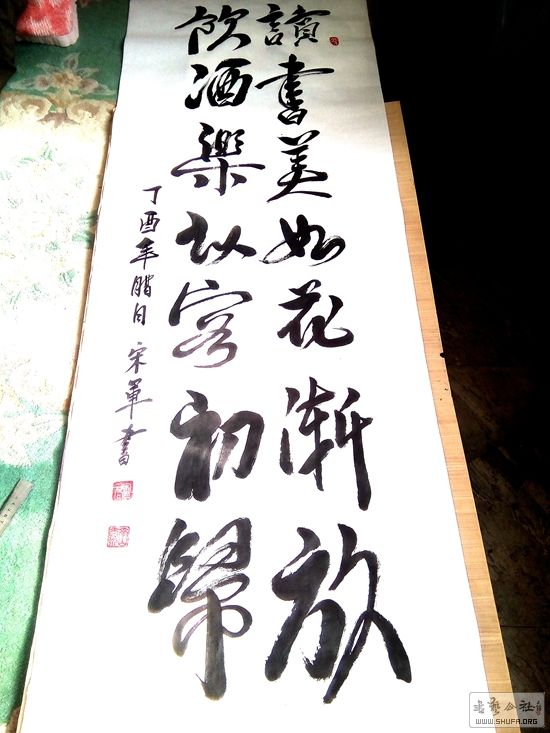 讀書美如花漸放
飲酒樂似客初歸
丁酉年腊月宋軍書
书艺公社
WWW.SHUFA.ORG